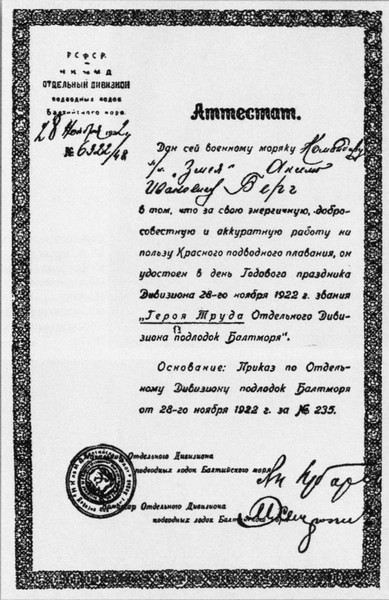 РСФСР.
ОТДЕЛЬНЫЙ ДИВИЗИОН
подводных лодок
Балтийского моря.
28 Ноября 1922
№ 6322/48
Аттестат.
Дан сей военному моряку Командиру
п/л. "Змея" Акселю
Ивановичу Берг
в том, что за свою энергичную, добро-
совестную и аккуратную работу на
пользу Красного подводного плавания, он
удостоен в день Годового праздника
Дивизиона 28-го ноября 1922 г. звания
"Героя Труда Отдельного Диви-
зиона подлодок Балтморя".
Основание: Приказ по Отдель-
ному Дивизиону подлодок Балтморя
от 28-го ноября 1922 г. за № 235.
Отдельного Дивизиона
подводных лодок Балтийского моря
Отдельного Дивизиона
подводных лодок